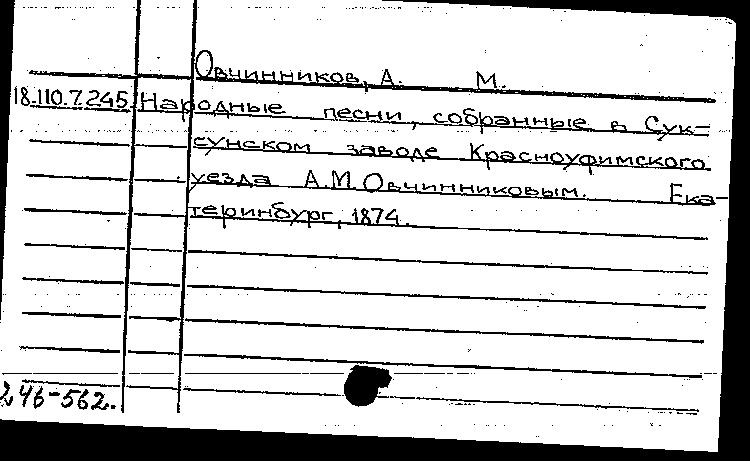 Овчинников, А. М.
18.110.7.245 Народные песни, собранные в Сук=
сунском заводе Красноуфимского
уезда А.М.Овчинниковым. Ека-
теринбург, 1874.
246-562.